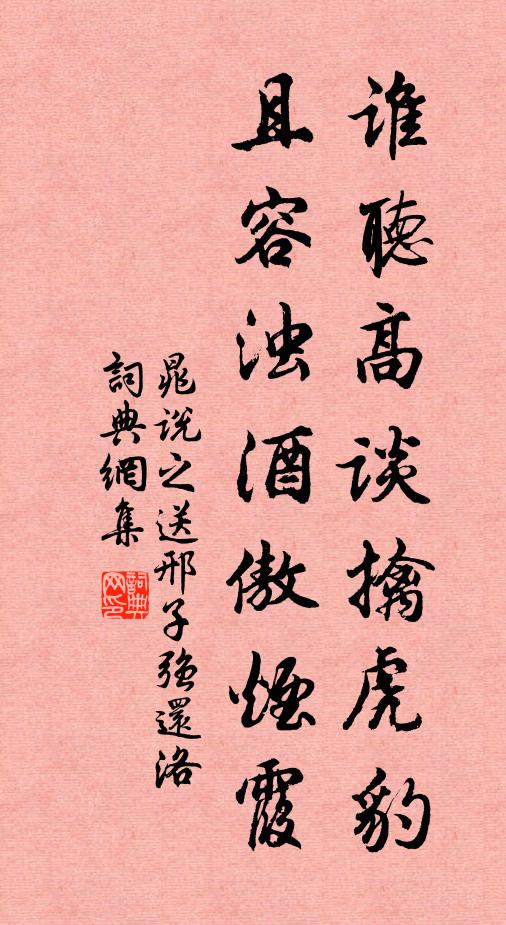 谁聽高谈擒虎豹
且容浊酒傲煙霞
晁说之送邢子强還洛
詞典網集
詞典网印